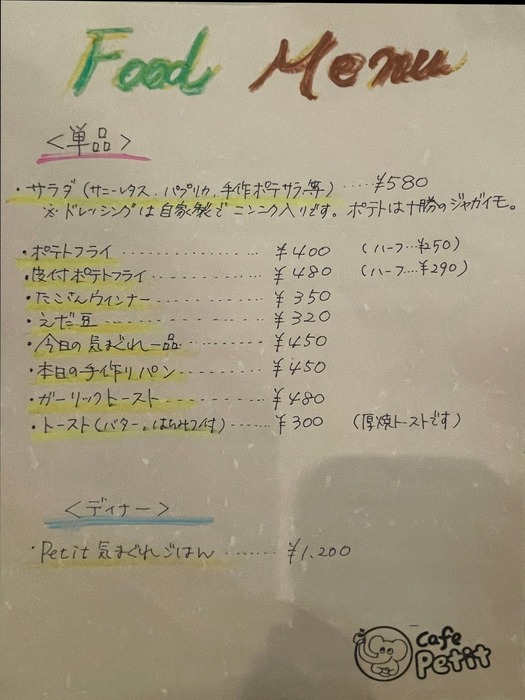 Food Menu
<単品>
・サラダ(サニーレタス、パプリカ、手作ポテサラ等)‥‥¥580
※ドレッシングは自家製でニンニク入りです。ポテトは十勝のジャガイモ。
・ポテトフライ‥‥‥‥¥400 (ハーフ…¥250)
・皮付ポテトフライ‥‥‥‥¥480 (ハーフ…¥290)
・たこさんウインナー‥‥‥‥¥350
・えだ豆‥‥‥‥¥320
・今日の気まぐれ一品‥‥‥‥¥450
・本日の手作りパン‥‥‥‥¥450
・ガーリックトースト‥‥‥‥¥480
・トースト(バター、はちみつ付)‥‥¥300 (厚焼トーストです)
<ディナー>
・Petit 気まぐれごはん‥‥‥¥1,200
cafe
Petit